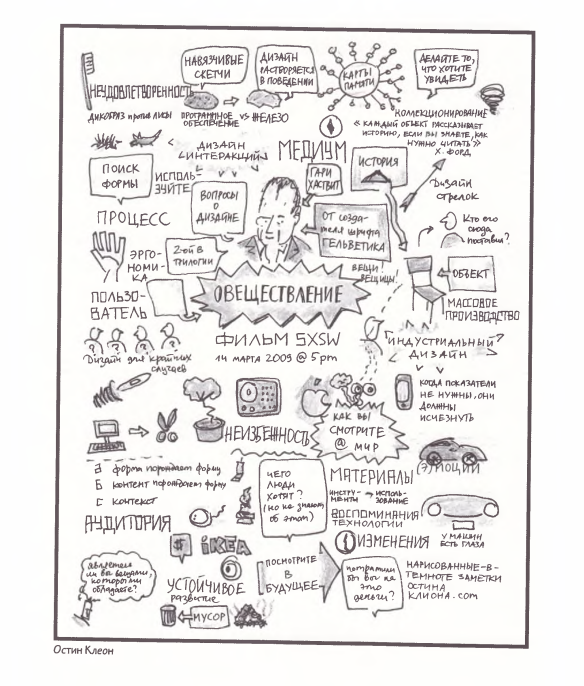 НАВЯЗЧИВЫЕ
СКЕТЧИ
ДИЗАЙН
РАСТВОРЯЕТСЯ
В ПОВЕДЕНИИ
КАРТЫ
ПАМЯТИ
ДЕЛАЙТЕ ТО,
ЧТО ХОТИТЕ
УВИДЕТЬ
НЕУДОВЛЕТВОРЕННОСТЬ
ДИКОБРАЗ против ЛИСЫ
ПРОГРАММНОЕ
ОБЕСПЕЧЕНИЕ
VS ЖЕЛЕЗО
КОЛЛЕКЦИОНИРОВАНИЕ
«КАЖДЫЙ ОБЪЕКТ РАССКАЗЫВАЕТ
ИСТОРИЮ, ЕСЛИ ВЫ ЗНАЕТЕ, КАК
НУЖНО ЧИТАТЬ»
Х. ФОРД
ДИЗАЙН
<ИНТЕРАКЦИЙ>
МЕДИУМ
ИСТОРИЯ
ПОИСК
ФОРМЫ
ИСПОЛЬ-
ЗУЙТЕ
ГАРИ
ХАСТВИТ
Дизайн
стрелок
ВОПРОСЫ
О
ДИЗАЙНЕ
ПРОЦЕСС
ОТ созда-
теля шрифта
ГЕЛЬВЕТИКА
Кто его
сюда
поставил?
ЭРГО-
НОМИ-
КА
2-ой В
ТРИЛОГИИ
ВЕЩИ!
ВЕЩИЦЫ!
ОБЪЕКТ
ОВЕЩЕСТВЛЕНИЕ
ПОЛЬЗО-
ВАТЕЛЬ
МАССОВОЕ
ПРОИЗВОДСТВО
ФИЛЬМ SXSW
14 МАРТА 2009 @ 5pm
ИНДУСТРИАЛЬНЫЙ
ДИЗАЙН
Дизайн для крайних
случаев
КОГДА ПОКАЗАТЕЛИ
НЕ НУЖНЫ, ОНИ
ДОЛЖНЫ
ИСЧЕЗНУТЬ
КАК ВЫ
СМОТРИТЕ
@ МИР
НЕИЗБЕЖНОСТЬ
(ЭМОЦИИ)
a форма порождает форму
Б контент порождает форму
c контекст
ЧЕГО
ЛЮДИ
ХОТЯТ?
(но не знают
об этом)
МАТЕРИАЛЫ
ИНСТРУ-
МЕНТЫ → ИСПОЛЬ-
ЗОВАНИЕ
ВОСПОМИНАНИЯ
ТЕХНОЛОГИИ
АУДИТОРИЯ
ИЗМЕНЕНИЯ
У МАШИН
ЕСТЬ ГЛАЗА
# IKEA
Являетесь
ли вы вещами,
которыми
обладаете?
УСТОЙЧИВОЕ
развитие
ПОСМОТРИТЕ
В
БУДУЩЕЕ
потратили
бы вы на
это
деньги?
НАРИСОВАННЫЕ-В-
ТЕМНОТЕ ЗАМЕТКИ
ОСТИНА
КЛИОНА.COM
МУСОР
Остин Клеон